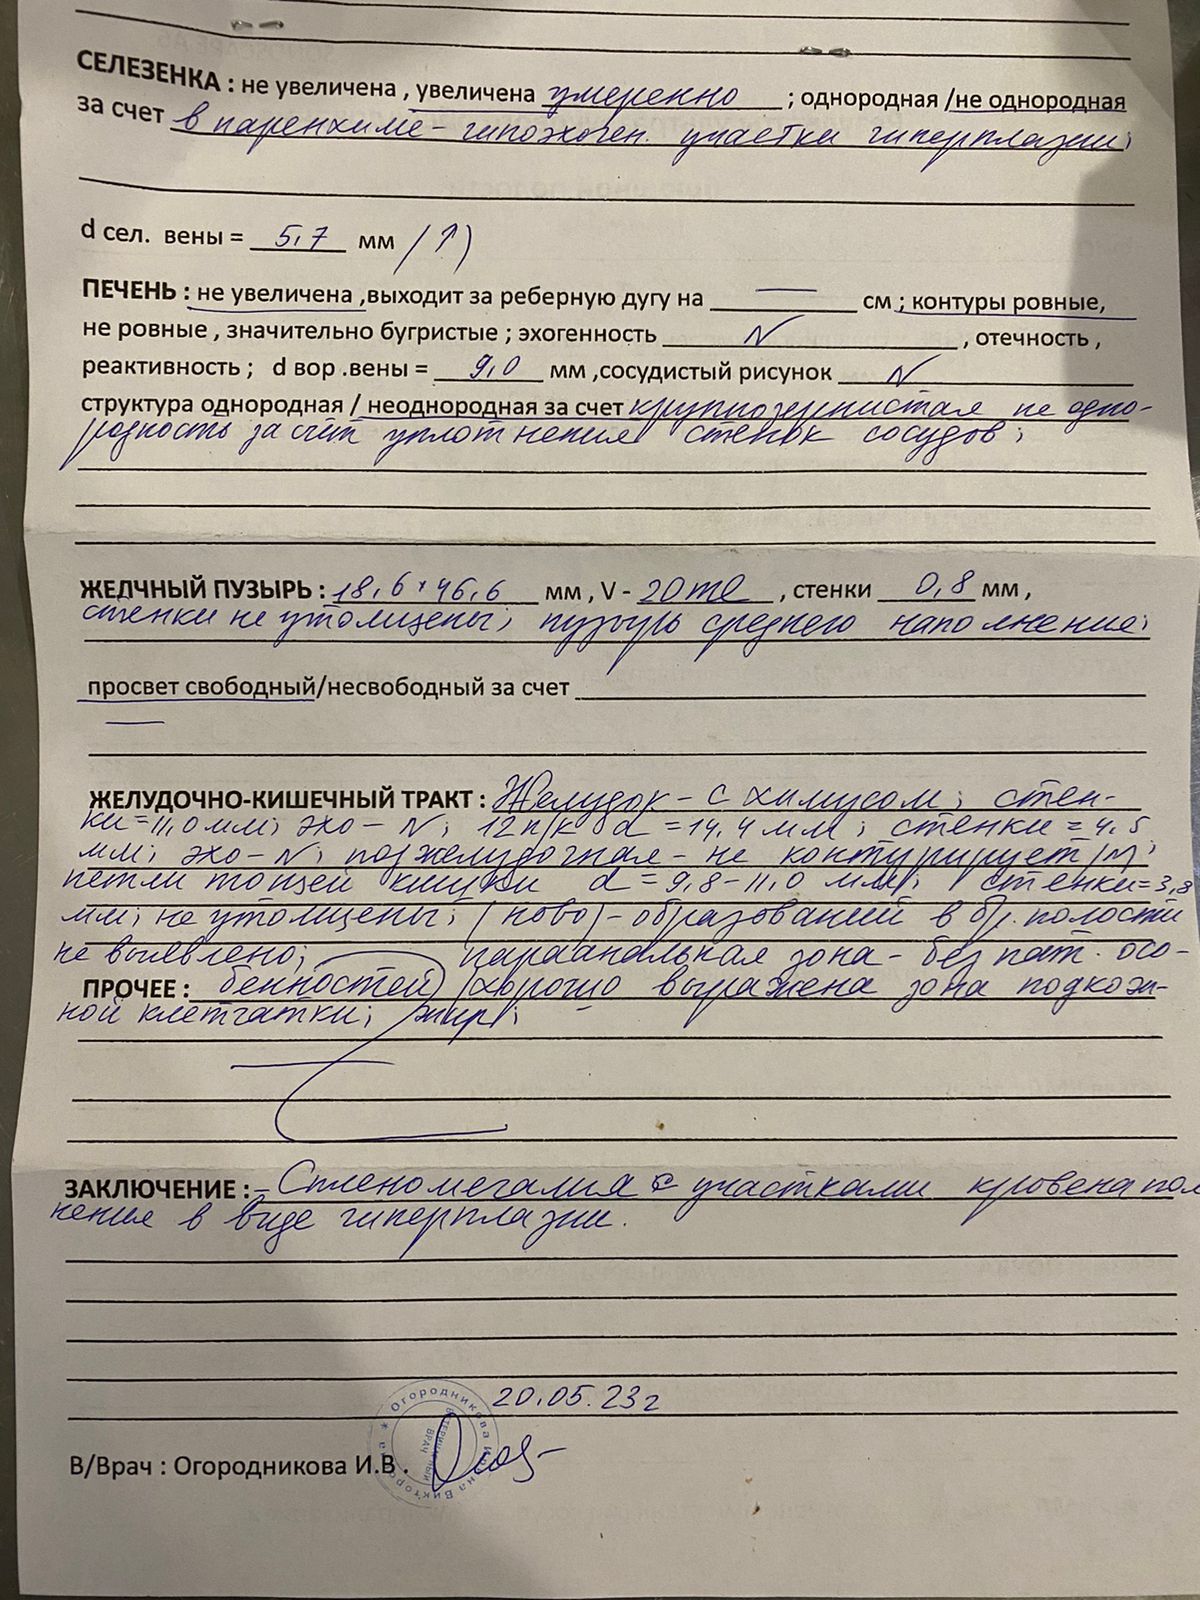 СЕЛЕЗЕНКА : не увеличена , увеличена умеренно ; однородная /не однородная
за счет в паренхиме - гипоэхоген. участки гиперплазии;
d сел. вены = 5,7 мм (↑)
ПЕЧЕНЬ : не увеличена ,выходит за реберную дугу на — см ; контуры ровные,
не ровные , значительно бугристые ; эхогенность N , отечность ,
реактивность ; d вор .вены = 9,0 мм ,сосудистый рисунок N
структура однородная / неоднородная за счет крупнозернистая не одно-
родность за счёт уплотнения стенок сосудов;
ЖЕЛЧНЫЙ ПУЗЫРЬ : 18,6 × 46,6 мм , V - 20 ml , стенки 0,8 мм ,
стенки не утолщены; пузырь среднего наполнения;
просвет свободный/несвободный за счет
—
ЖЕЛУДОЧНО-КИШЕЧНЫЙ ТРАКТ : Желудок - с химусом; стен-
ки = 11,0 мм; эхо - N; 12 п/к d = 14,4 мм; стенки = 4,5
мм; эхо - N; поджелудочная - не контурирует (N);
петли тощей кишки d = 9,8 - 11,0 мм; стенки = 3,8
мм; не утолщены; (ново) - образований в бр. полости
не выявлено; параанальная зона - без пат. осо-
ПРОЧЕЕ : бенностей (хорошо выражена зона подкож-
ной клетчатки; жир;
ЗАКЛЮЧЕНИЕ : - Спленомегалия с участками кровенапол
нения в виде гиперплазии.
20.05.23 г
Огородникова Ирина Викторовна
ВЕТЕРИНАРНЫЙ
ВРАЧ
В/Врач : Огородникова И.В .